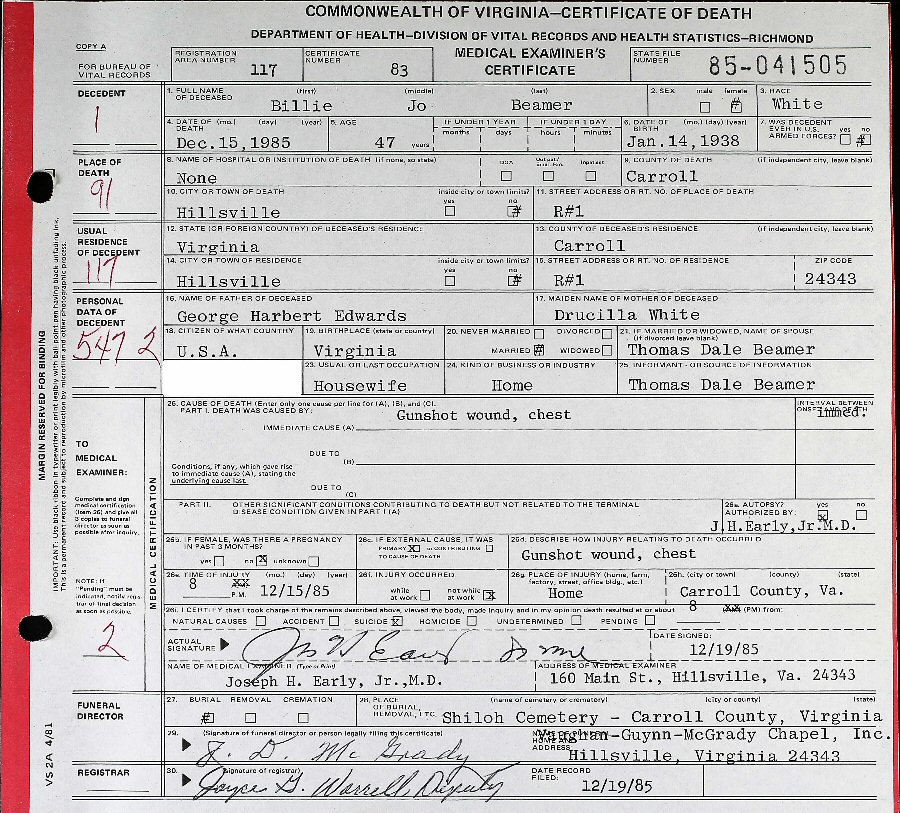 COMMONWEALTH OF VIRGINIA—CERTIFICATE OF DEATH
DEPARTMENT OF HEALTH—DIVISION OF VITAL RECORDS AND HEALTH STATISTICS—RICHMOND
COPY A
FOR BUREAU OF VITAL RECORDS
REGISTRATION AREA NUMBER 117
CERTIFICATE NUMBER 83
MEDICAL EXAMINER'S CERTIFICATE
STATE FILE NUMBER 85-041505
DECEDENT
1
1. FULL NAME OF DECEASED (first) (middle) (last)
Billie Jo Beamer
2. SEX male female
3. RACE White
4. DATE OF DEATH (mo.) (day) (year) Dec.15,1985
5. AGE 47 years
IF UNDER 1 YEAR months days
IF UNDER 1 DAY hours minutes
6. DATE OF BIRTH (mo.) (day) (year) Jan.14,1938
7. WAS DECEDENT EVER IN U.S. ARMED FORCES? yes no
PLACE OF DEATH
91
8. NAME OF HOSPITAL OR INSTITUTION OF DEATH (if none, so state)
None
DOA Inpatient
9. COUNTY OF DEATH (if independent city, leave blank)
Carroll
10. CITY OR TOWN OF DEATH inside city or town limits? yes no
Hillsville
11. STREET ADDRESS OR RT. NO. OF PLACE OF DEATH
R#1
USUAL RESIDENCE OF DECEDENT
117
12. STATE (OR FOREIGN COUNTRY) OF DECEASED'S RESIDENCE
Virginia
13. COUNTY OF DECEASED'S RESIDENCE (if independent city, leave blank)
Carroll
14. CITY OR TOWN OF RESIDENCE inside city or town limits? yes no
Hillsville
15. STREET ADDRESS OR RT. NO. OF RESIDENCE
R#1
ZIP CODE
24343
PERSONAL DATA OF DECEDENT
547 2
16. NAME OF FATHER OF DECEASED
George Harbert Edwards
17. MAIDEN NAME OF MOTHER OF DECEASED
Drucilla White
18. CITIZEN OF WHAT COUNTRY
U.S.A.
19. BIRTHPLACE (state or country)
Virginia
20. NEVER MARRIED DIVORCED
MARRIED WIDOWED
21. IF MARRIED OR WIDOWED, NAME OF SPOUSE (if divorced leave blank)
Thomas Dale Beamer
23. USUAL OR LAST OCCUPATION
Housewife
24. KIND OF BUSINESS OR INDUSTRY
Home
25. INFORMANT - OR SOURCE OF INFORMATION
Thomas Dale Beamer
MARGIN RESERVED FOR BINDING
IMPORTANT: Use black ribbon in typewriter or print legibly with ball-point pen having black unfading ink.
This is a permanent record and subject to reproduction by microfilm and other photographic process.
TO MEDICAL EXAMINER:
Complete and sign medical certification (item 26) and give all 3 copies to funeral director as soon as possible after inquiry.
NOTE: If "Pending" must be indicated, notify registrar of final decision as soon as possible.
2
MEDICAL CERTIFICATION
26. CAUSE OF DEATH (Enter only one cause per line for (A), (B), and (C).
PART I. DEATH WAS CAUSED BY:
INTERVAL BETWEEN ONSET AND DEATH
IMMEDIATE CAUSE (A) Gunshot wound, chest immed.
DUE TO (B)
Conditions, if any, which gave rise to immediate cause (A), stating the underlying cause last.
DUE TO (C)
PART II. OTHER SIGNIFICANT CONDITIONS CONTRIBUTING TO DEATH BUT NOT RELATED TO THE TERMINAL DISEASE CONDITION GIVEN IN PART I (A)
26a. AUTOPSY? yes no
AUTHORIZED BY:
J.H.Early,Jr.M.D.
26b. IF FEMALE, WAS THERE A PREGNANCY IN PAST 3 MONTHS?
yes no X unknown
26c. IF EXTERNAL CAUSE, IT WAS
PRIMARY X or CONTRIBUTING
TO CAUSE OF DEATH
26d. DESCRIBE HOW INJURY RELATING TO DEATH OCCURRED
Gunshot wound, chest
26e. TIME OF INJURY (mo.) (day) (year)
8 P.M. 12/15/85
26f. INJURY OCCURRED
while at work not while at work X
26g. PLACE OF INJURY (home, farm, factory, street, office bldg., etc.)
Home
26h. (city or town) (county) (state)
Carroll County, Va.
26i. I CERTIFY that I took charge of the remains described above, viewed the body, made inquiry and in my opinion death resulted at or about 8 (PM) from:
NATURAL CAUSES ACCIDENT SUICIDE X HOMICIDE UNDETERMINED PENDING
ACTUAL SIGNATURE
DATE SIGNED:
12/19/85
NAME OF MEDICAL EXAMINER (Type or Print)
Joseph H. Early, Jr.,M.D.
ADDRESS OF MEDICAL EXAMINER
160 Main St., Hillsville, Va. 24343
FUNERAL DIRECTOR
27. BURIAL REMOVAL CREMATION
28. PLACE OF BURIAL, REMOVAL, ETC. (name of cemetery or crematory) (city or county) (state)
Shiloh Cemetery - Carroll County, Virginia
29. (Signature of funeral director or person legally filing this certificate)
J. D. McGrady
ADDRESS
Vaughan-Guynn-McGrady Chapel, Inc.
Hillsville, Virginia 24343
VS 2A 4/81
REGISTRAR
30. (Signature of registrar)
Joyce G. Worrell, Deputy
DATE RECORD FILED:
12/19/85